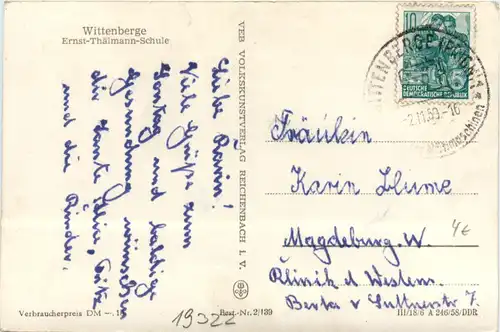 Wittenberge
Ernst-Thälmann-Schule
Liebe Karin!
Viele Grüße zum
Sonntag und baldige
Gesundung wünschen
dir Tante Lin, Fritz
und die Kinder.
VEB VOLKSKUNSTVERLAG REICHENBACH I. V.
10
DEUTSCHE
DEMOKRATISCHE REPUBLIK
WITTENBERGE
2.11.59.-16
Nähmaschinen
Fräulein
Karin Blume
Magdeburg. W.
Klinik d. Westens.
Berta v. Suttnerstr 7.
4€
Verbraucherpreis DM —.15
19322
Best.-Nr. 2/139
III/18/6 A 246/58/DDR